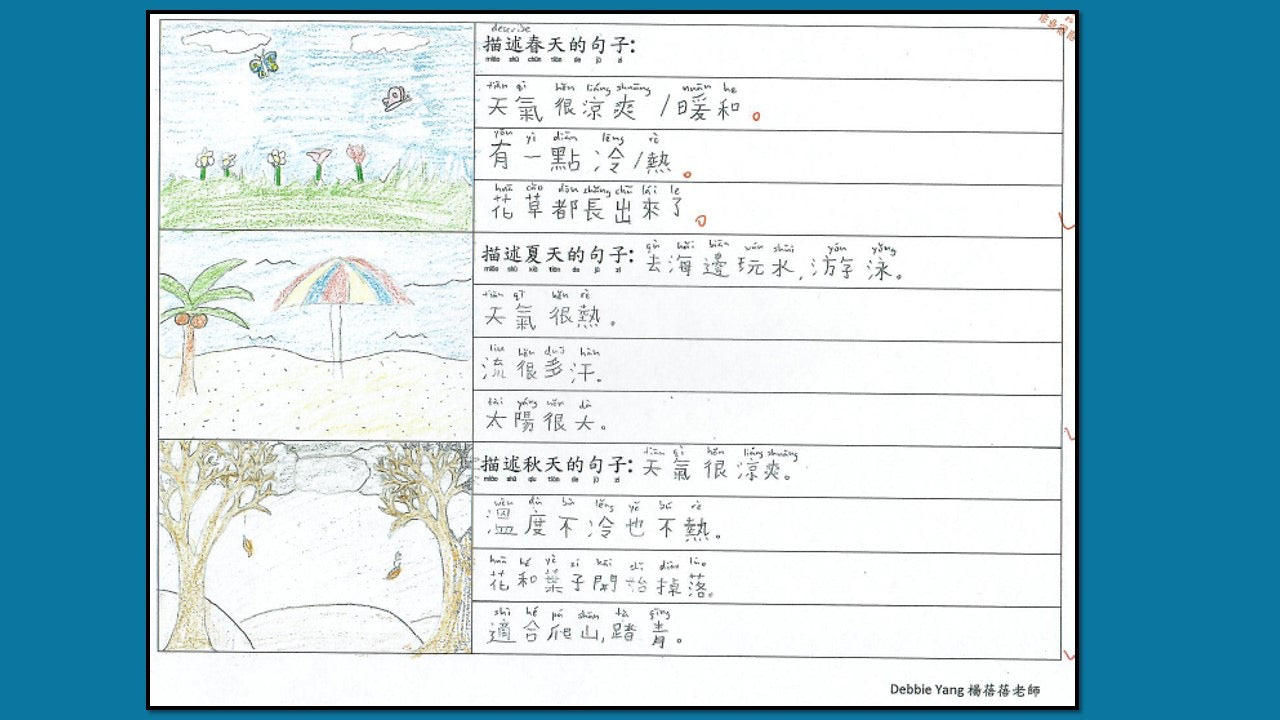 describe
描述春天的句子:
miáo shù chūn tiān de jù zi
tiān qì hěn liáng shuǎng nuǎn he
天氣很涼爽 /暖和。
yǒu yì diǎn lěng rè
有一點冷/熱。
huā cǎo dōu zhǎng chū lái le
花草都長出來了。
qù hǎi biān wán shuǐ yóu yǒng
描述夏天的句子: 去海邊玩水,游泳。
miáo shù xià tiān de jù zi
tiān qì hěn rè
天氣很熱。
liú hěn duō hàn
流很多汗。
tài yáng hěn dà
太陽很大。
tiān qì hěn liáng shuǎng
描述秋天的句子: 天氣很涼爽。
miáo shù qiu tiān de jù zi
wēn dù bù lěng yě bú rè
溫度不冷也不熱。
huā hé yè zi kāi shǐ diào luò
花和葉子開始掉落。
shì hé pá shān tà qīng
適合爬山,踏青。
Debbie Yang 楊蓓蓓老師